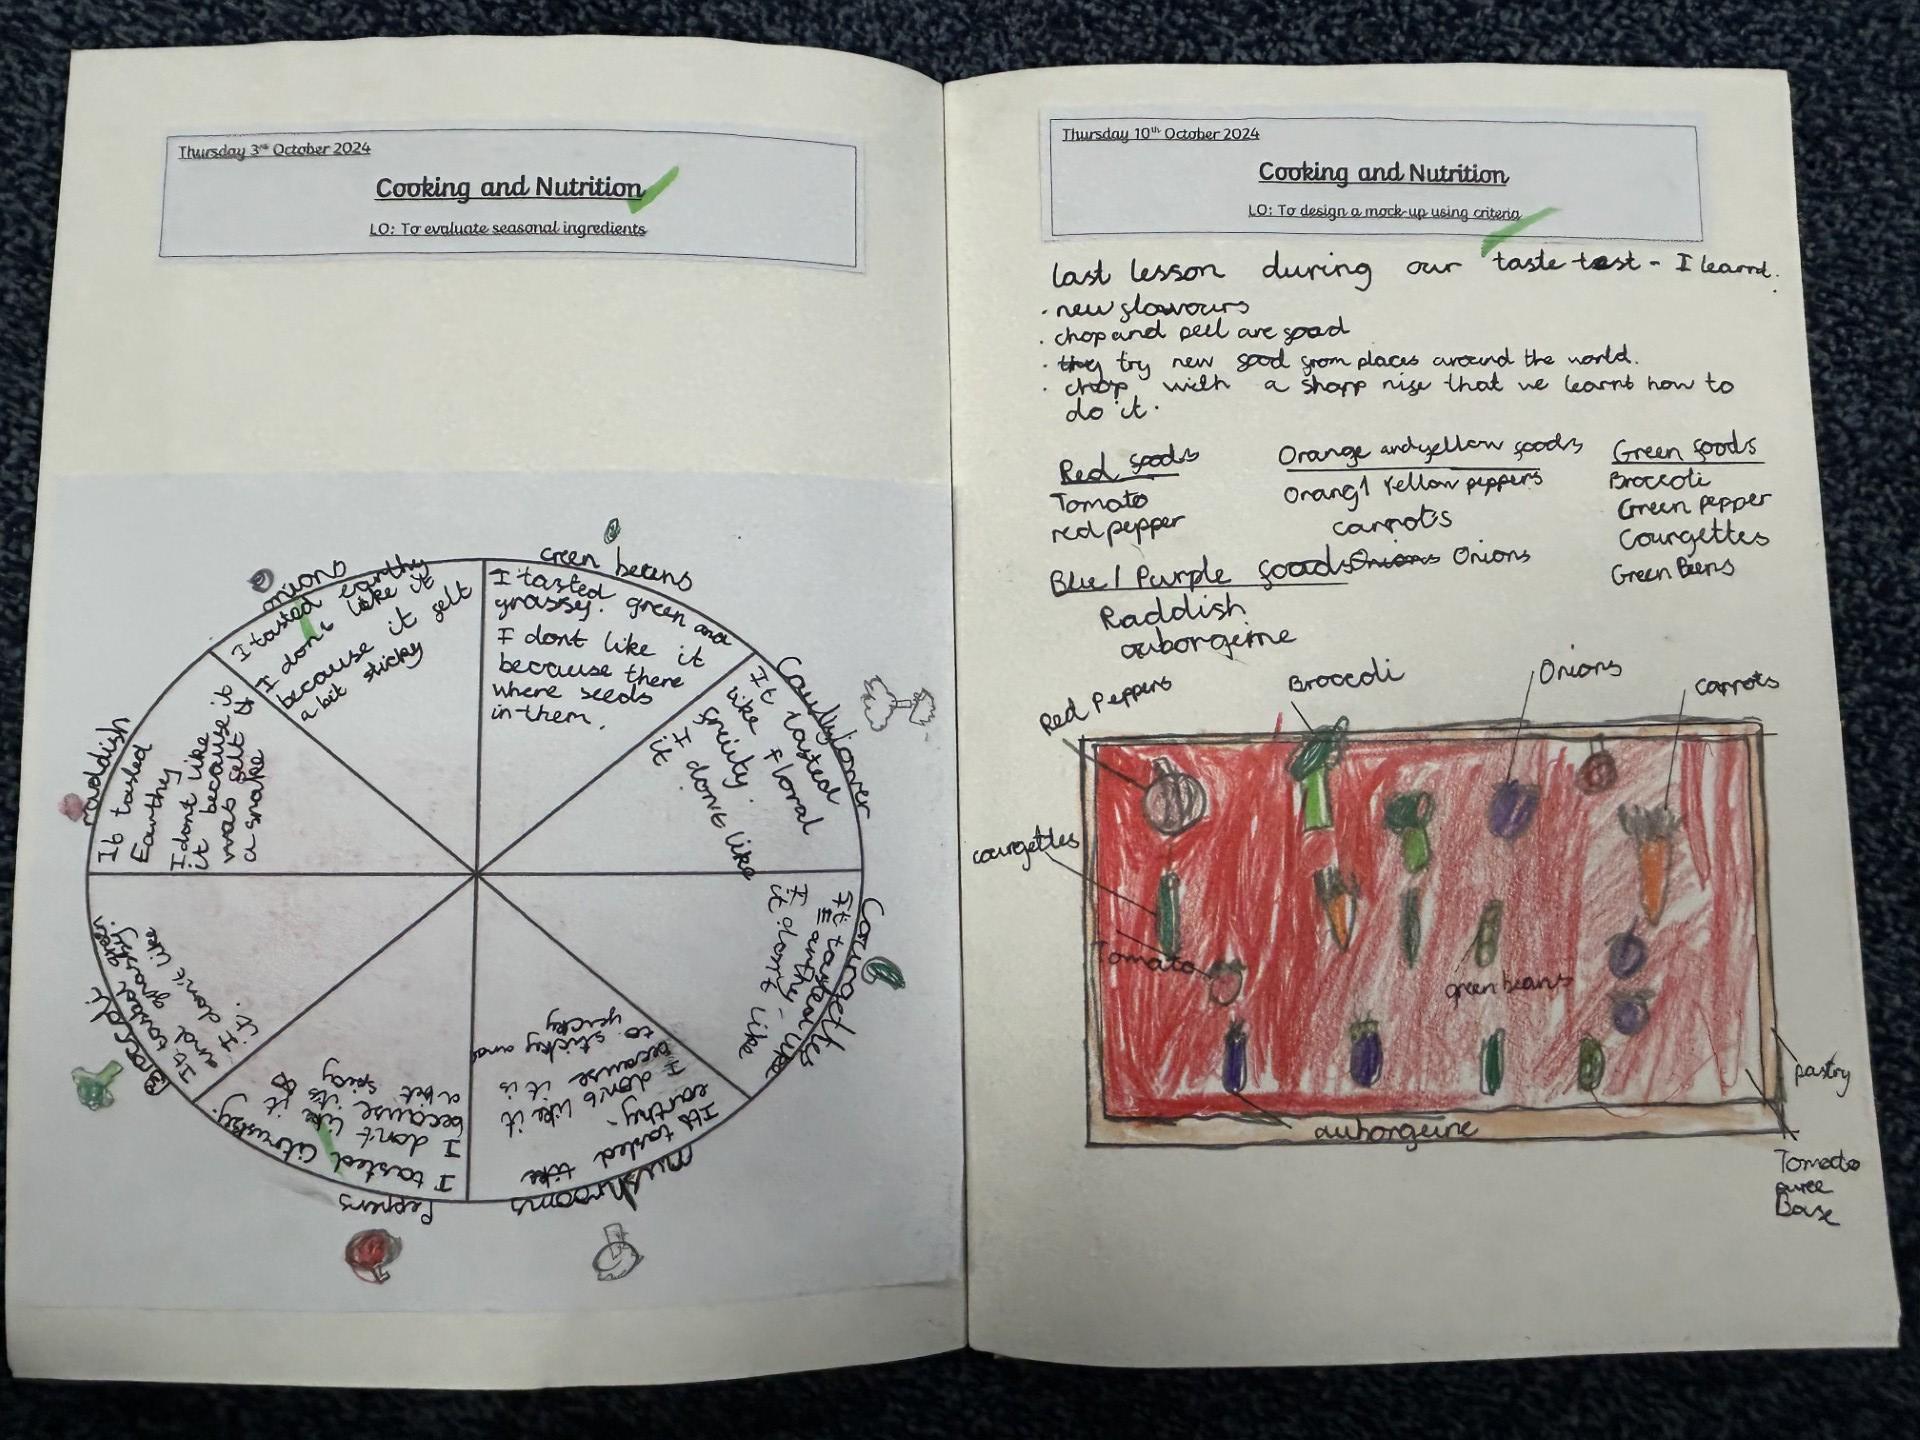 Thursday 3rd October 2024
Cooking and Nutrition
LO: To evaluate seasonal ingredients
onions
I tasted earthy
I don't like it
because it felt
a bit sticky
Green beans
I tasted green and
grassy.
I dont like it
because there
where seeds
in them.
Caulyflower
It tasted
like Floral
I don't like
it
Courgettes
It tasted like
Earthy -
I don't like
it
mushrooms
It tasted like
earthy -
I don't like it
because it is
to sticky and
Peppers
I tasted Citrusy.
I don't like it
because it's
a bit spicy
Broccoli
It tasted green
and grassy
I don't like
it.
raddish
It tasted
Earthy
I dont like
it because it
was felt is
a snake
Thursday 10th October 2024
Cooking and Nutrition
LO: To design a mock-up using criteria
last lesson during our taste test - I learnt.
· new flavours
· chop and peel are food
· they try new food from places around the world.
· chop with a sharp nife that we learnt how to
do it.
Red foods
Tomato
red pepper
Orange and yellow foods
Orang / Yellow peppers
carrots
Green foods
Broccoli
Green pepper
Courgettes
Green Beens
Blue / Purple foods Onions Onions
Raddish
auborgeine
Red Peppers
Broccoli
Onions
carrots
courgettes
Tomato
green beans
auborgeine
pastry
Tomato
puree
Base